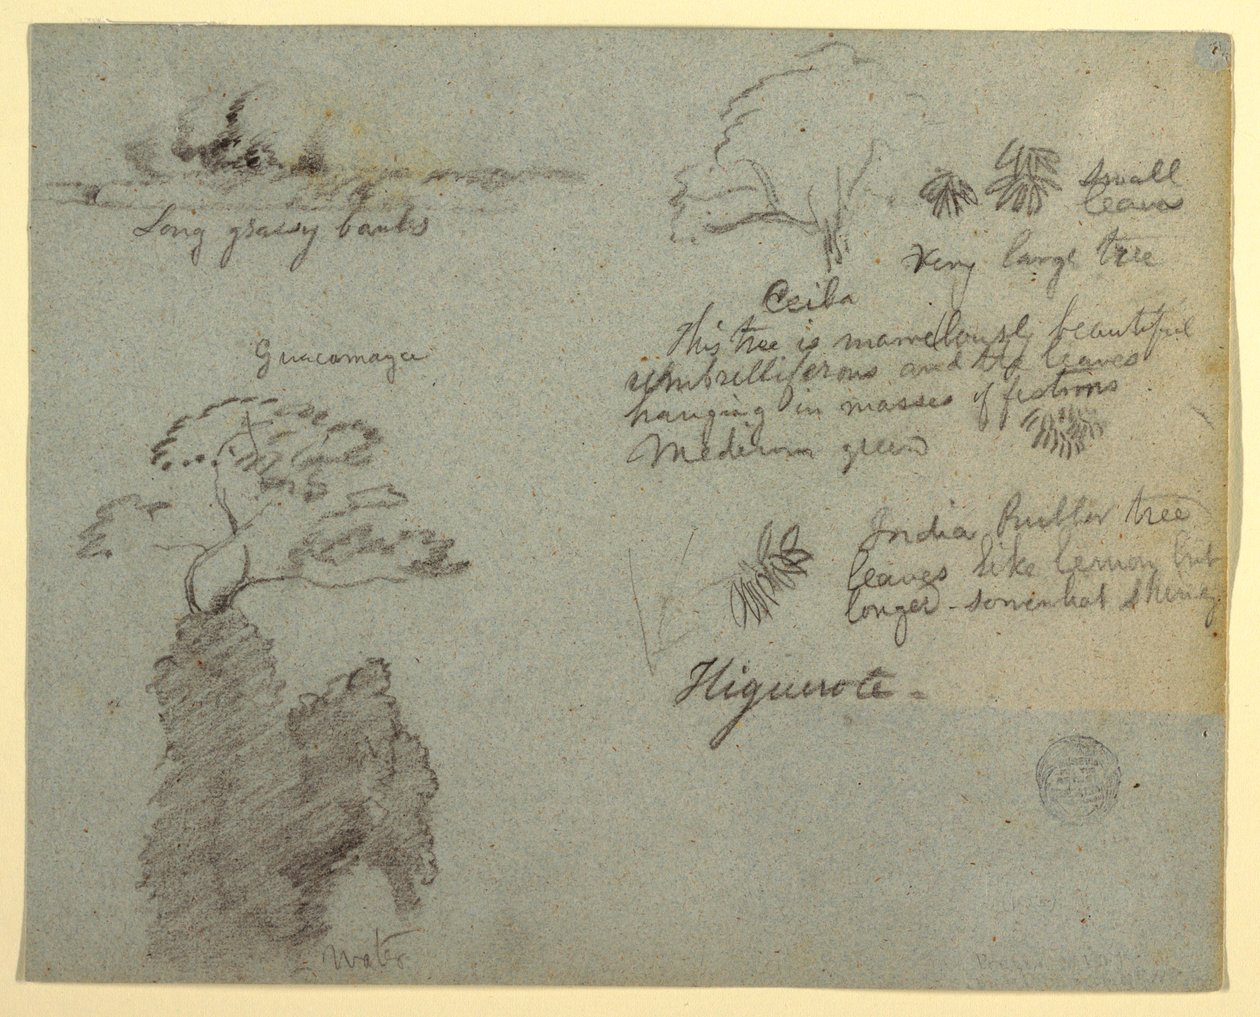 Long grassy banks
Guacamaya
water
Small
leaves
Very large tree
Ceiba
This tree is marvelously beautiful
umbrelliferous and the leaves
hanging in masses of festoons
Medium green
India Rubber tree
leaves like lemon but
longer - somewhat shiny
Higuerote -